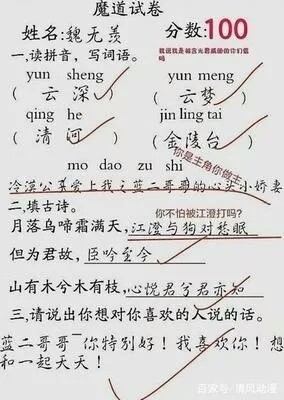 魔道试卷
姓名:魏无羡 分数:100
一,读拼音,写词语。
yun sheng yun meng
(云深) (云梦)
qing he jin ling tai
(清河) (金陵台)
你是主角你做主
mo dao zu shi
冷漠公子爱上我之蓝二哥哥的心头小娇妻
二,填古诗。
你不怕被江澄打吗?
月落乌啼霜满天,江澄与狗对愁眠
但为君故,臣吟至今
山有木兮木有枝,心悦君兮君亦知
三,请说出你想对你喜欢的人说的话。
蓝二哥哥~你特别好!我喜欢你!想
和一起天天!
百家号/清风动漫